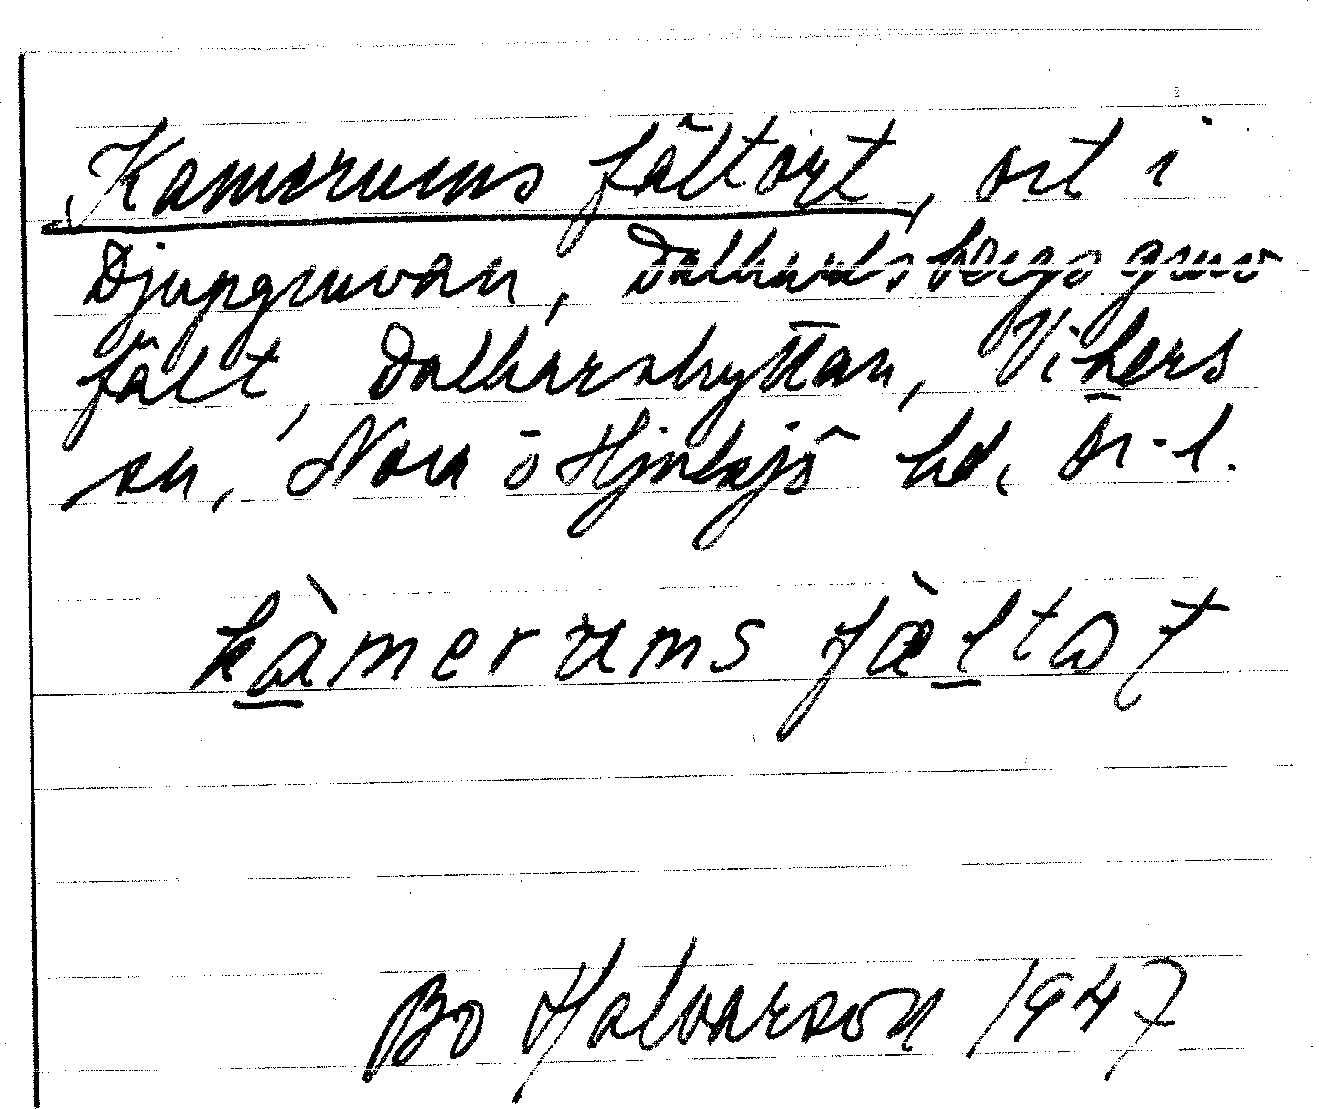 Kamerums fältort, ort i
Djupgruvan, Dalkarlsbergs gruv
fält, Dalkarshyttan, Vikers
sn, Nora o Hjulsjö hd, Ör-l.
kàmerums fæ̀ltoṭ
Bo Halvarson 1947